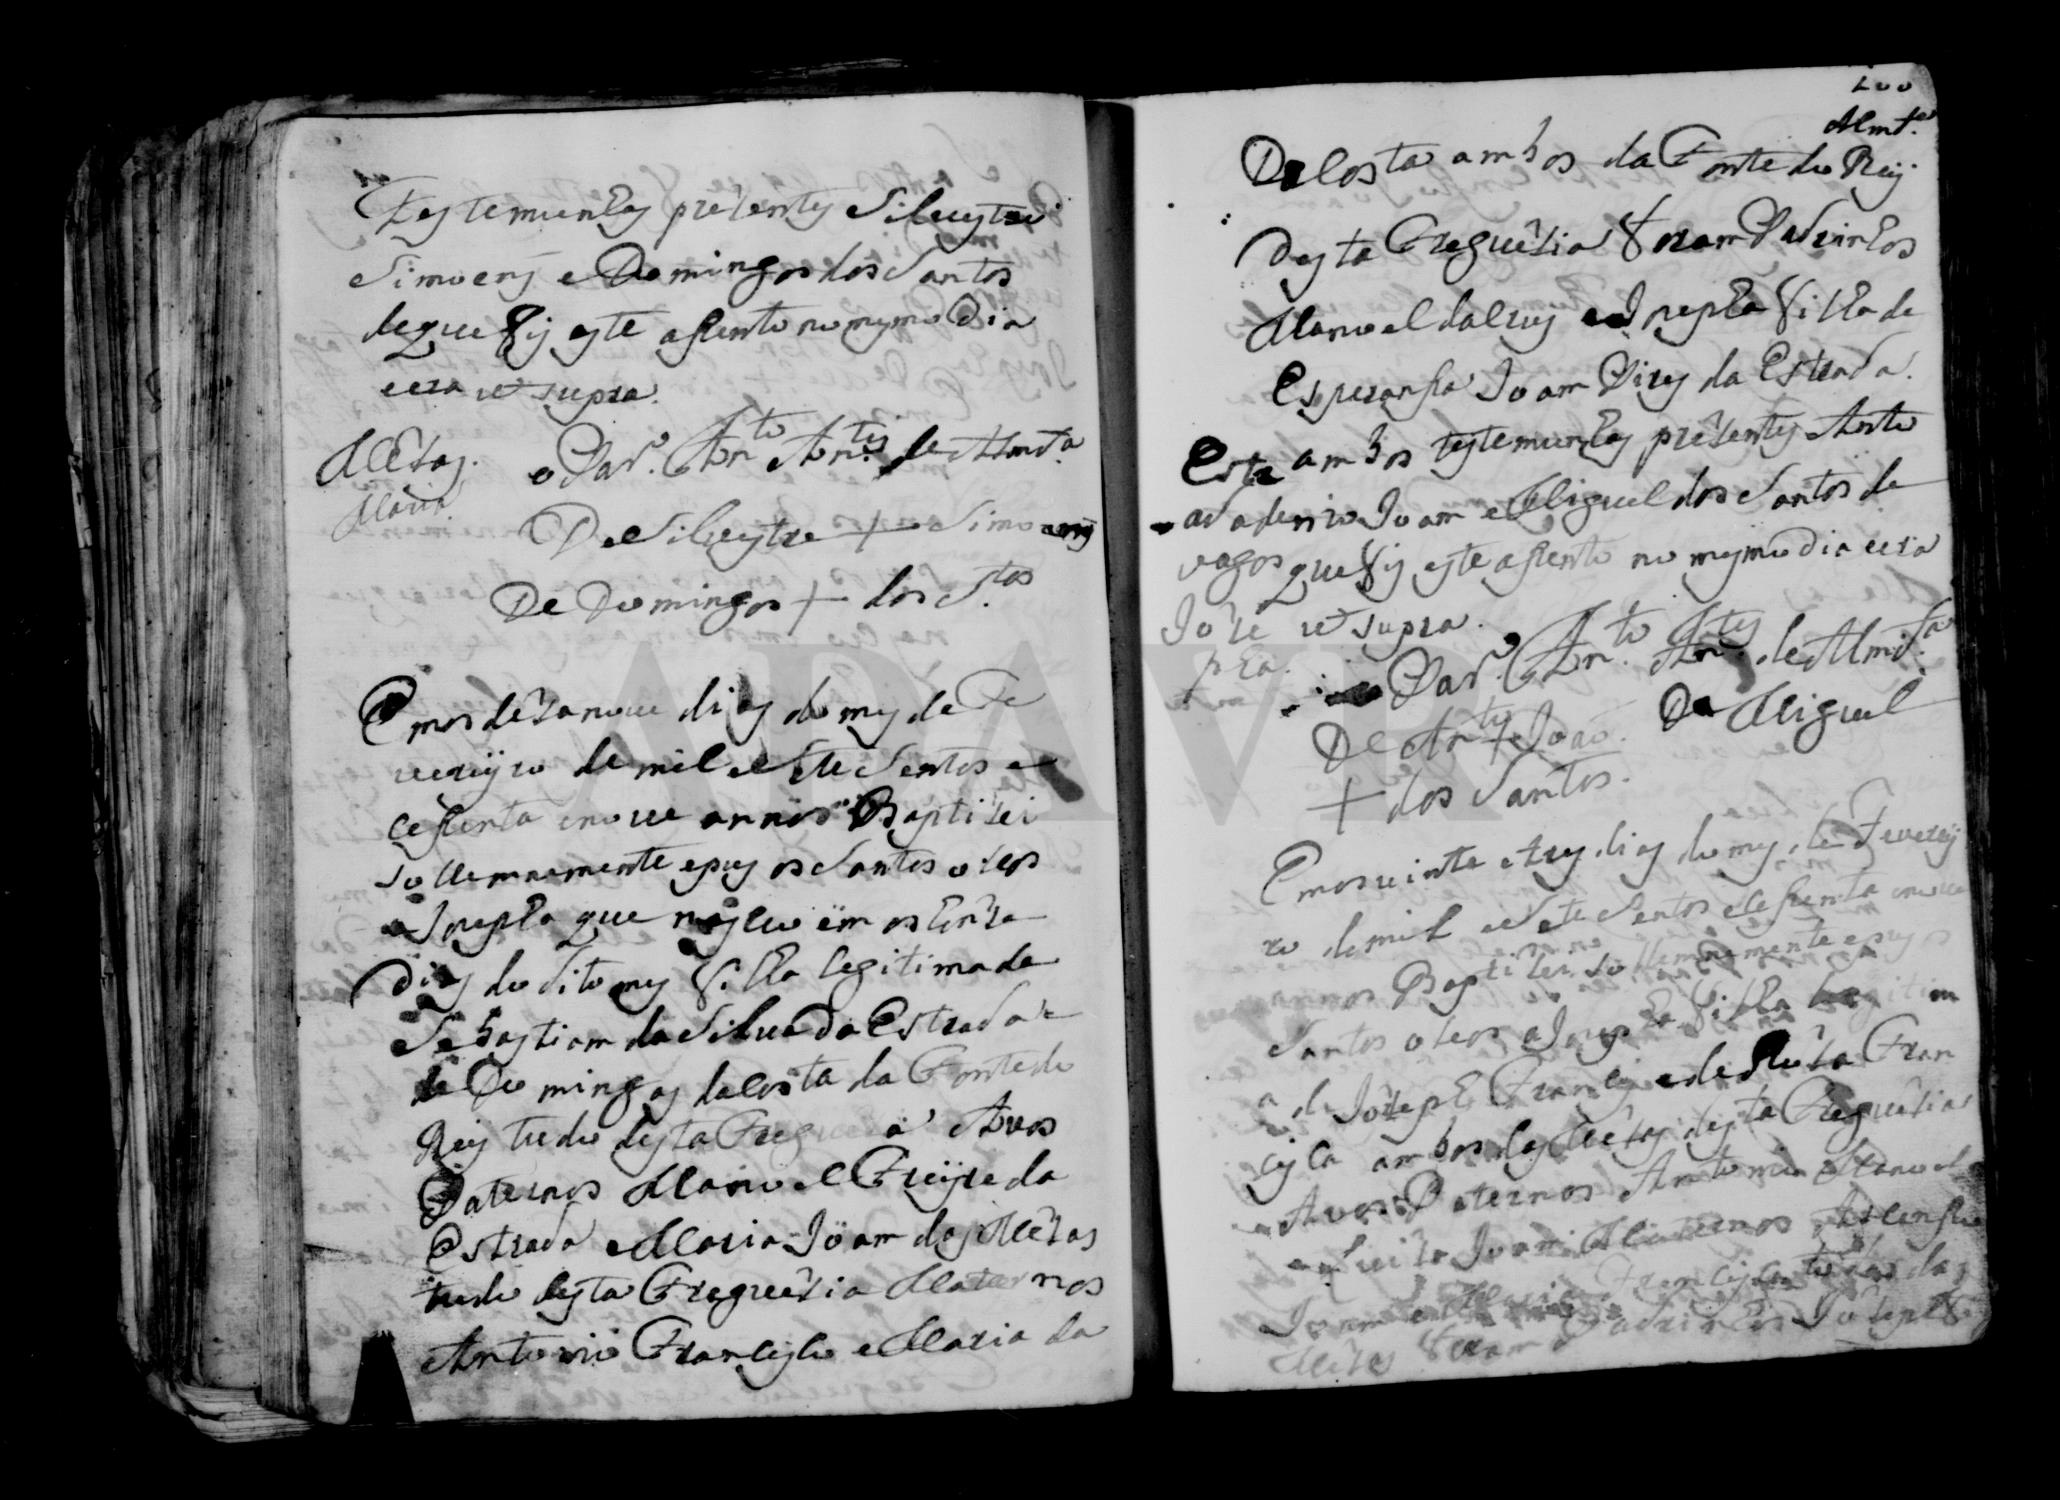 Testemunhas prezentes Siluestre
Simoens e Domingos dos Santos
de que fis este assento no mesmo Dia
eera ut supra.
Mezas.
Maria
o Par.º Ant.º An.tes de Almd.ª
De Siluestre + Simoens
De Domingos + dos S.tos
Emos dezanoue dias do mes de Fe
uereiyro de mil e Sete Sentos e
cessenta enoue annos Baptizei
sollemnemente epus os Santos oleos
a Jozepha que nasceo em os honze
dias do dito mes filha legitima de
Sebastiam da Silua da Estrada e
de Domingas da Costa da Fonte do
Reis tudo desta Freguezia Auos
Paternos Manoel Freijre da
Estrada e Maria Joam das Mezas
tudo desta Freguezia Maternos
Antonio Francisco e Maria da
200
Almd.ª
Da Costa ambos da Fonte do Reij
desta Freguezia foram Padrinhos
Manoel da Crus e Jozepha filha de
Esperansa Joam Pires da Estrada.
Esta
ambos testemunhas prezentes Anto
Joam e Miguel dos Santos de
vagos que fis este assento no mesmo dia eera
Joze
ut supra.
pha.
Par.º Ant.º An.tes de Almd.ª
De An.to + Joaõ. De Miguel
+ dos Santos.
Emos uinte e tres dias do mes de Feuerey
ro de mil e Sete Sentos e cessenta enoue
annos Baptizei sollemnemente epus os
Santos oleos a Jozepha filha legitim
a de Jozeph Francisco e de Luiza Fran
cisca ambos das Mezas desta Freguezia
Auos Paternos Antonio Manoel
e Luiza Joam Maternos Asenso
Joam e Maria Francisca todos das
Mezas foram Padrinhos Jozeph